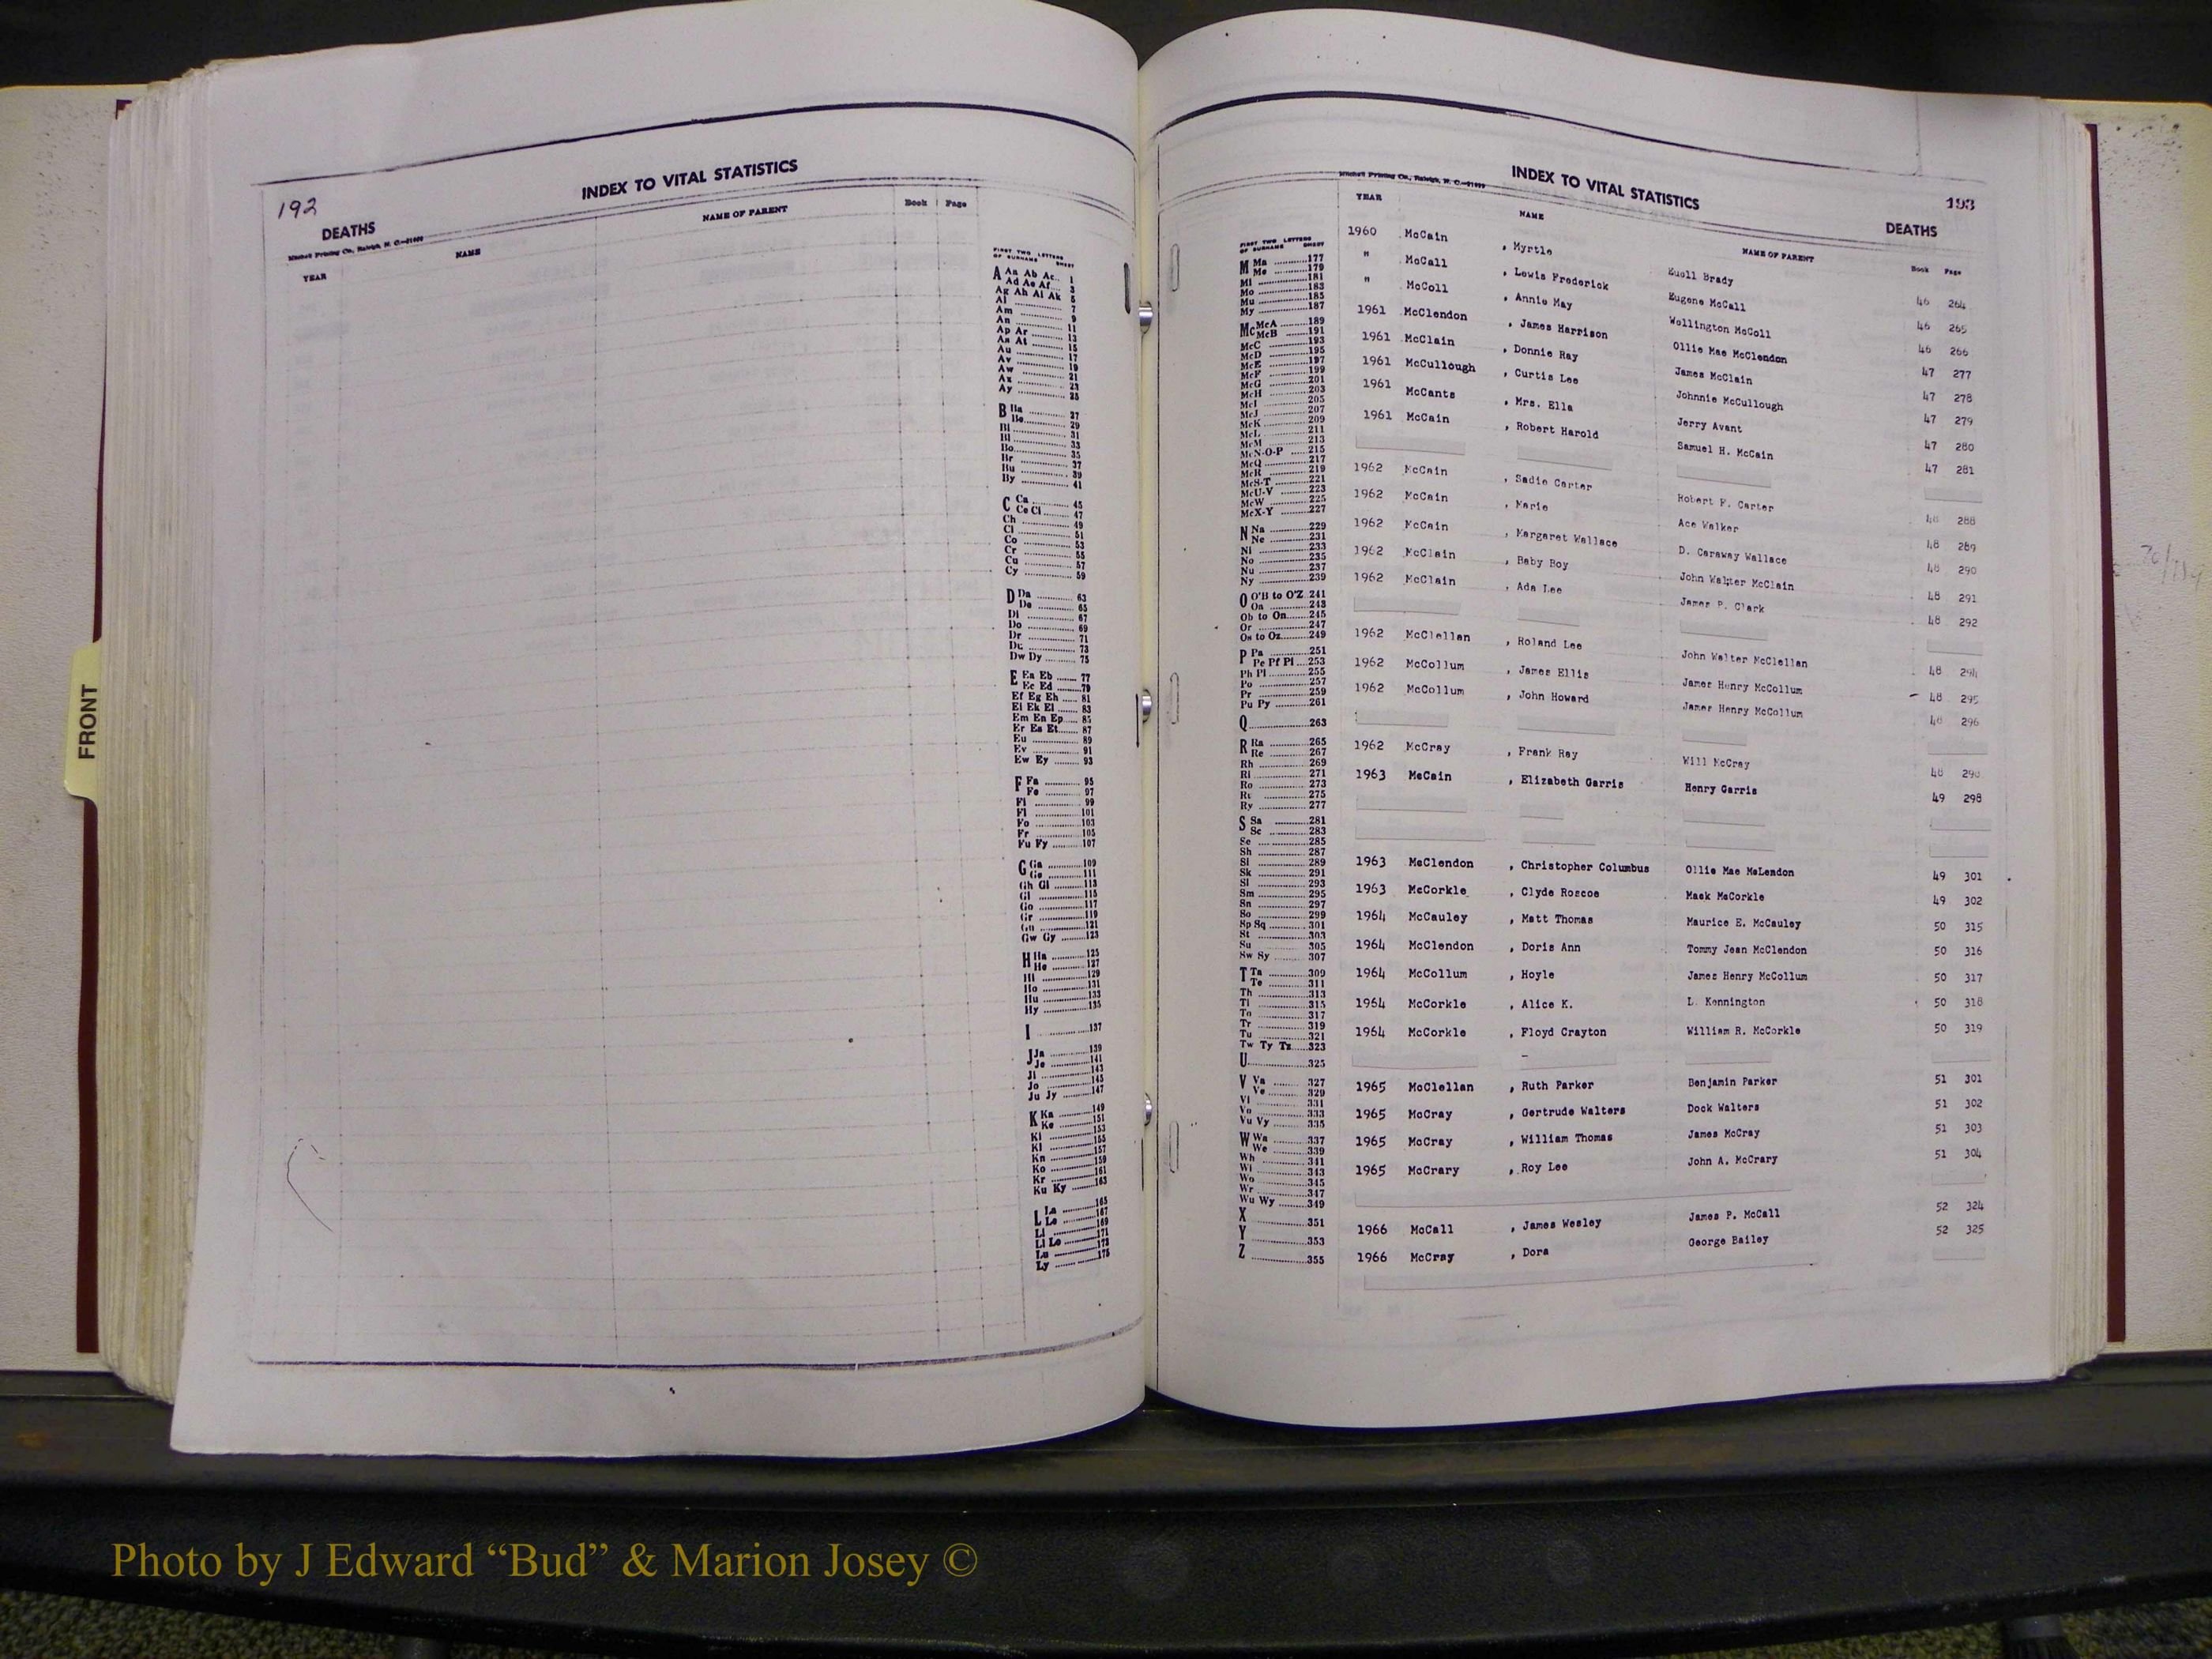 192
INDEX TO VITAL STATISTICS
DEATHS
Mitchell Printing Co., Raleigh, N. C.
YEAR NAME NAME OF PARENT Book Page
FIRST TWO LETTERS OF SURNAME SHEET
A Aa Ab Ac 1
Ad Ae Af 3
Ag Ah Ai Ak 5
Al 7
Am 9
An 11
Ap Ar 13
As At 15
Au 17
Av 19
Aw 21
Ax 23
Ay 25
B Ba 27
Be 29
Bi 31
Bl 33
Bo 35
Br 37
Bu 39
By 41
C Ca 45
Ce Ci 47
Ch 49
Cl 51
Co 53
Cr 55
Cu 57
Cy 59
D Da 63
De 65
Di 67
Do 69
Dr 71
Du 73
Dw Dy 75
E Ea Eb 77
Ec Ed 79
Ef Eg Eh 81
Ei Ek El 83
Em En Ep 85
Er Es Et 87
Eu 89
Ev 91
Ew Ey 93
F Fa 95
Fe 97
Fi 99
Fl 101
Fo 103
Fr 105
Fu Fy 107
G Ga 109
Ge 111
Gh Gi 113
Gl 115
Go 117
Gr 119
Gu 121
Gw Gy 123
H Ha 125
He 127
Hi 129
Ho 131
Hu 133
Hy 135
I 137
J Ja 139
Je 141
Ji 143
Jo 145
Ju Jy 147
K Ka 149
Ke 151
Ki 153
Kl 155
Kn 157
Ko 159
Kr 161
Ku Ky 163
L La 165
Le 167
Li 169
Ll Lo 171
Lu 173
Ly 175
FRONT
INDEX TO VITAL STATISTICS
193
Mitchell Printing Co., Raleigh, N. C.
DEATHS
YEAR NAME NAME OF PARENT Book Page
FIRST TWO LETTERS OF SURNAME SHEET
M Ma 177
Me 179
Mi 181
Mo 183
Mu 185
My 187
Mc McA 189
McB 191
McC 193
McD 195
McE 197
McF 199
McG 201
McH 203
McI 205
McJ 207
McK 209
McL 211
McM 213
McN-O-P 215
McQ 217
McR 219
McS-T 221
McU-V 223
McW 225
McX-Y 227
N Na 229
Ne 231
Ni 233
No 235
Nu 237
Ny 239
O O'B to O'Z 241
Oa 243
Ob to On 245
Or 247
Os to Oz 249
P Pa 251
Pe Pf Pi 253
Ph Pl 255
Po 257
Pr 259
Pu Py 261
Q 263
R Ra 265
Re 267
Rh 269
Ri 271
Ro 273
Ru 275
Ry 277
S Sa 281
Sc 283
Se 285
Sh 287
Si 289
Sk 291
Sl 293
Sm 295
Sn 297
So 299
Sp Sq 301
St 303
Su 305
Sw Sy 307
T Ta 309
Te 311
Th 313
Ti 315
To 317
Tr 319
Tu 321
Tw Ty Tz 323
U 325
V Va 327
Ve 329
Vi 331
Vo 333
Vu Vy 335
W Wa 337
We 339
Wh 341
Wi 343
Wo 345
Wr 347
Wu Wy 349
X 351
Y 353
Z 355
1960 McCain , Myrtle Euell Brady 46 264
" McCall , Lewis Frederick Eugene McCall 46 265
" McColl , Annie May Wellington McColl 46 266
1961 McClendon , James Harrison Ollie Mae McClendon 47 277
1961 McClain , Donnie Ray James McClain 47 278
1961 McCullough , Curtis Lee Johnnie McCullough 47 279
1961 McCants , Mrs. Ella Jerry Avant 47 280
1961 McCain , Robert Harold Samuel H. McCain 47 281
1962 McCain , Sadie Carter Robert F. Carter 48 288
1962 McCain , Marie Ace Walker 48 289
1962 McCain , Margaret Wallace D. Caraway Wallace 48 290
1962 McClain , Baby Boy John Walter McClain 48 291
1962 McClain , Ada Lee James P. Clark 48 292
1962 McClellan , Roland Lee John Walter McClellan 48 294
1962 McCollum , James Ellis James Henry McCollum 48 295
1962 McCollum , John Howard James Henry McCollum 48 296
1962 McCray , Frank Ray Will McCray 48
1963 McCain , Elizabeth Garris Henry Garris 49 298
1963 McClendon , Christopher Columbus Ollie Mae McLendon 49 301
1963 McCorkle , Clyde Roscoe Mack McCorkle 49 302
1964 McCauley , Matt Thomas Maurice E. McCauley 50 315
1964 McClendon , Doris Ann Tommy Jean McClendon 50 316
1964 McCollum , Hoyle James Henry McCollum 50 317
1964 McCorkle , Alice K. L. Kennington 50 318
1964 McCorkle , Floyd Crayton William R. McCorkle 50 319
1965 McClellan , Ruth Parker Benjamin Parker 51 301
1965 McCray , Gertrude Walters Dock Walters 51 302
1965 McCray , William Thomas James McCray 51 303
1965 McCrary , Roy Lee John A. McCrary 51 304
1966 McCall , James Wesley James P. McCall 52 324
1966 McCray , Dora George Bailey 52 325
Photo by J Edward “Bud” & Marion Josey ©